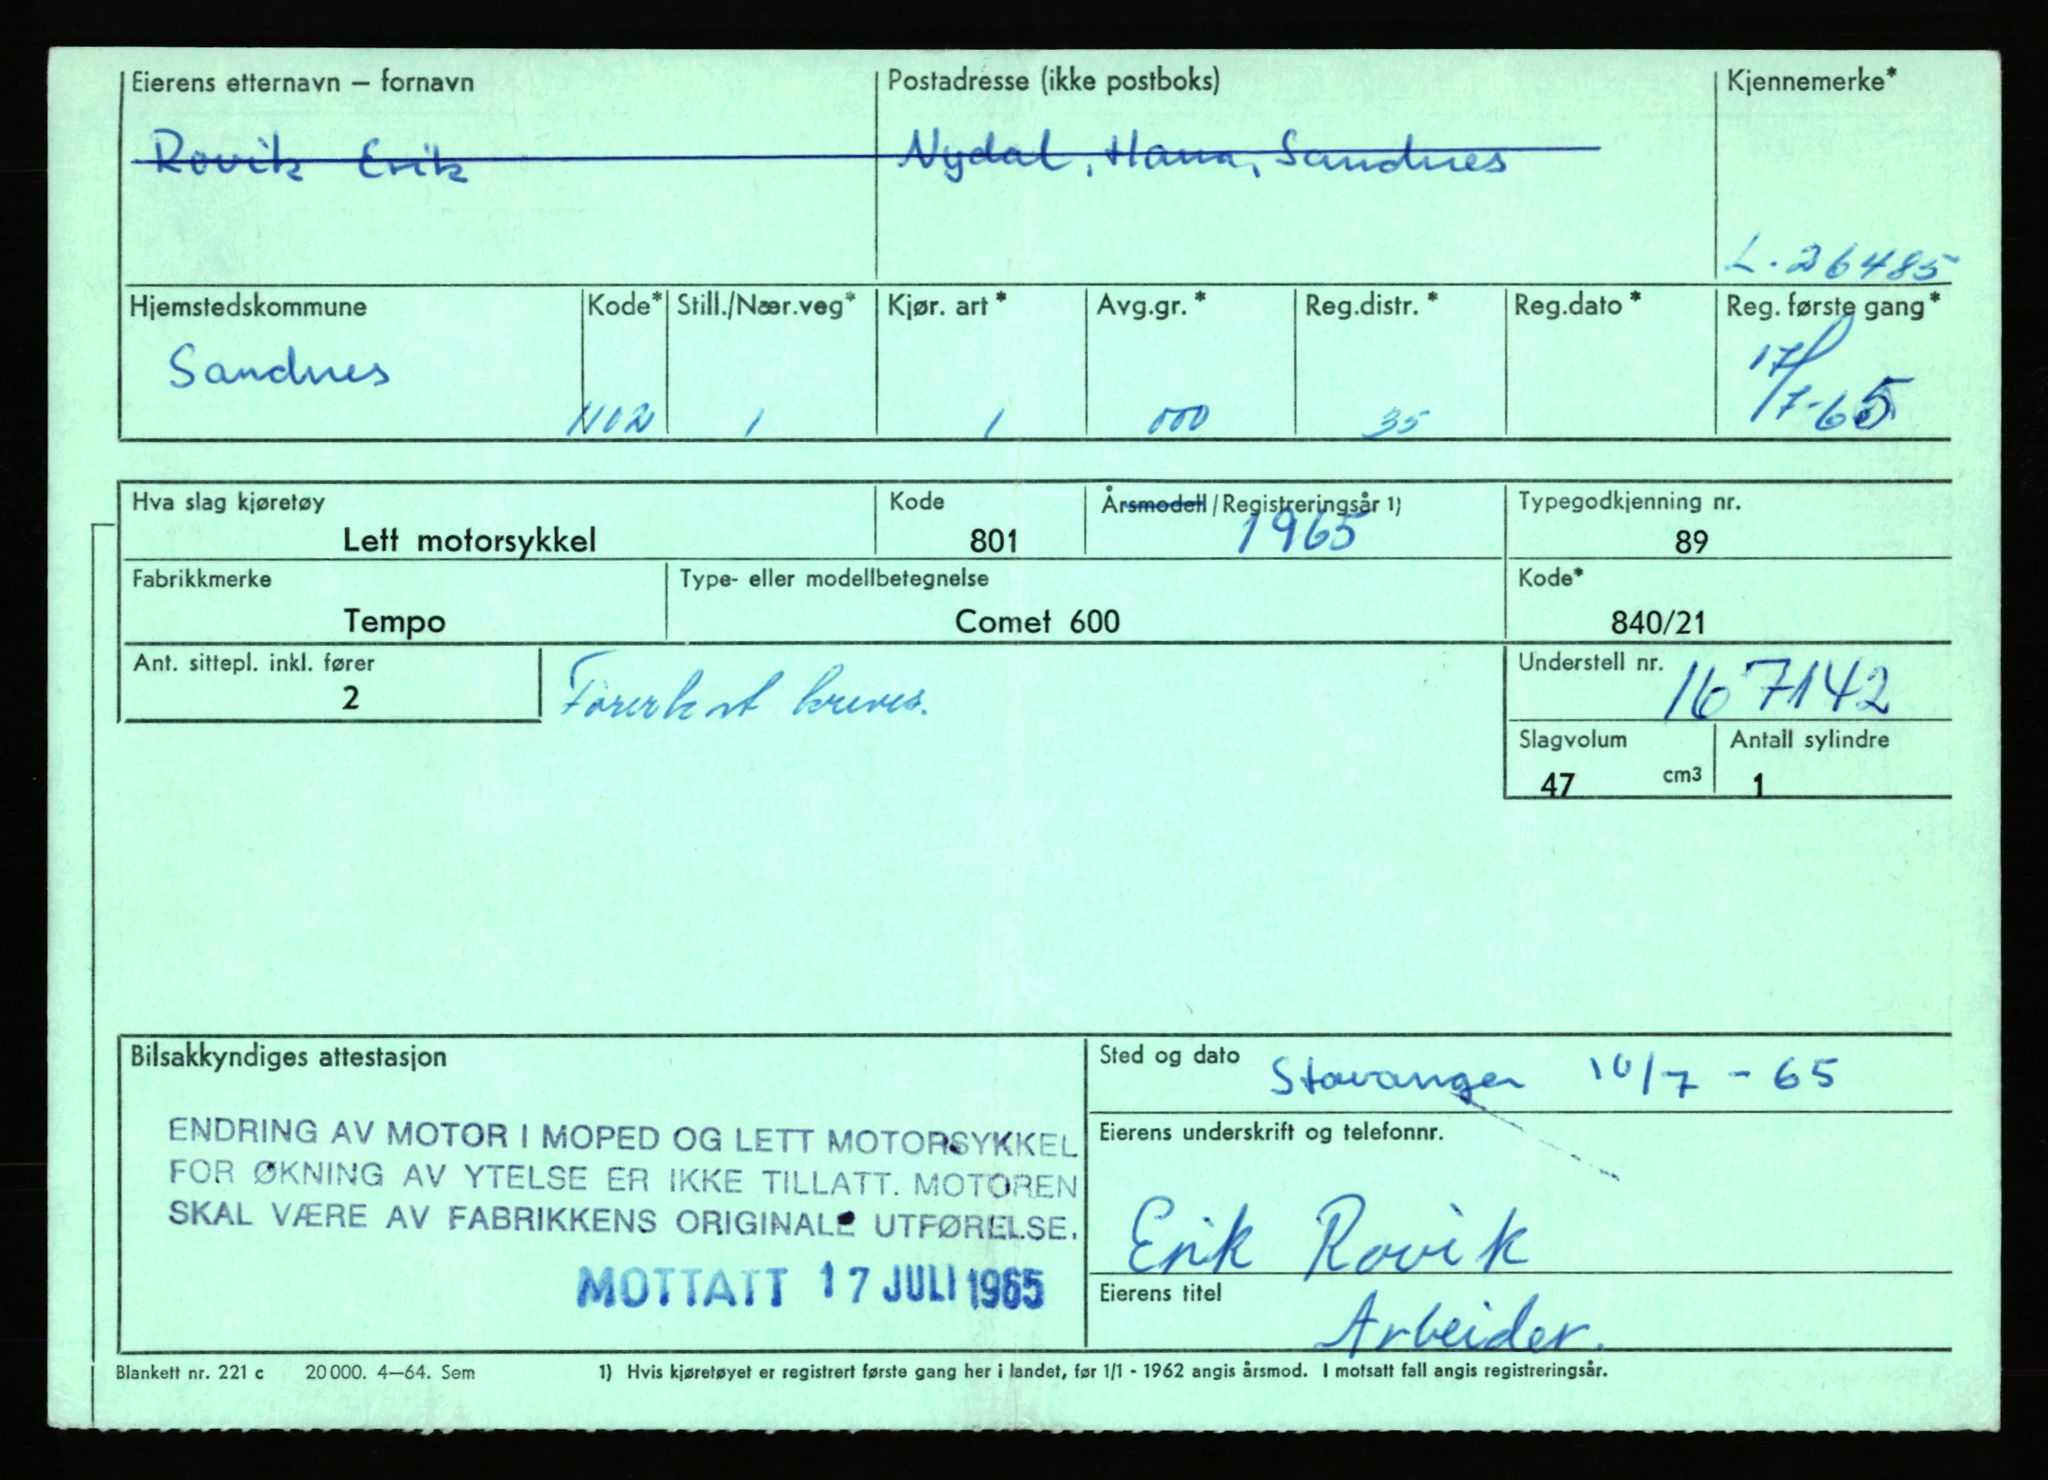 Eierens etternavn – fornavn
Postadresse (ikke postboks)
Kjennemerke*
Rovik Erik
Nydal, Hana, Sandnes
L-26485
Hjemstedskommune
Kode*
Still./Nær.veg*
Kjør. art*
Avg.gr.*
Reg.distr.*
Reg.dato*
Reg. første gang*
Sandnes
1102
1
1
000
35
17/7-65
Hva slag kjøretøy
Kode
Årsmodell/Registreringsår 1)
Typegodkjenning nr.
Lett motorsykkel
801
1965
89
Fabrikkmerke
Type- eller modellbetegnelse
Kode*
Tempo
Comet 600
840/21
Ant. sittepl. inkl. fører
2
Førerkort kreves.
Understell nr.
167142
Slagvolum
Antall sylindre
47 cm3
1
Bilsakkyndiges attestasjon
ENDRING AV MOTOR I MOPED OG LETT MOTORSYKKEL
FOR ØKNING AV YTELSE ER IKKE TILLATT. MOTOREN
SKAL VÆRE AV FABRIKKENS ORIGINALE UTFØRELSE.
MOTTATT 17 JULI 1965
Sted og dato
Stavanger 10/7 - 65
Eierens underskrift og telefonnr.
Erik Rovik
Eierens titel
Arbeider.
Blankett nr. 221 c 20 000. 4–64. Sem
1) Hvis kjøretøyet er registrert første gang her i landet, før 1/1 - 1962 angis årsmod. I motsatt fall angis registreringsår.